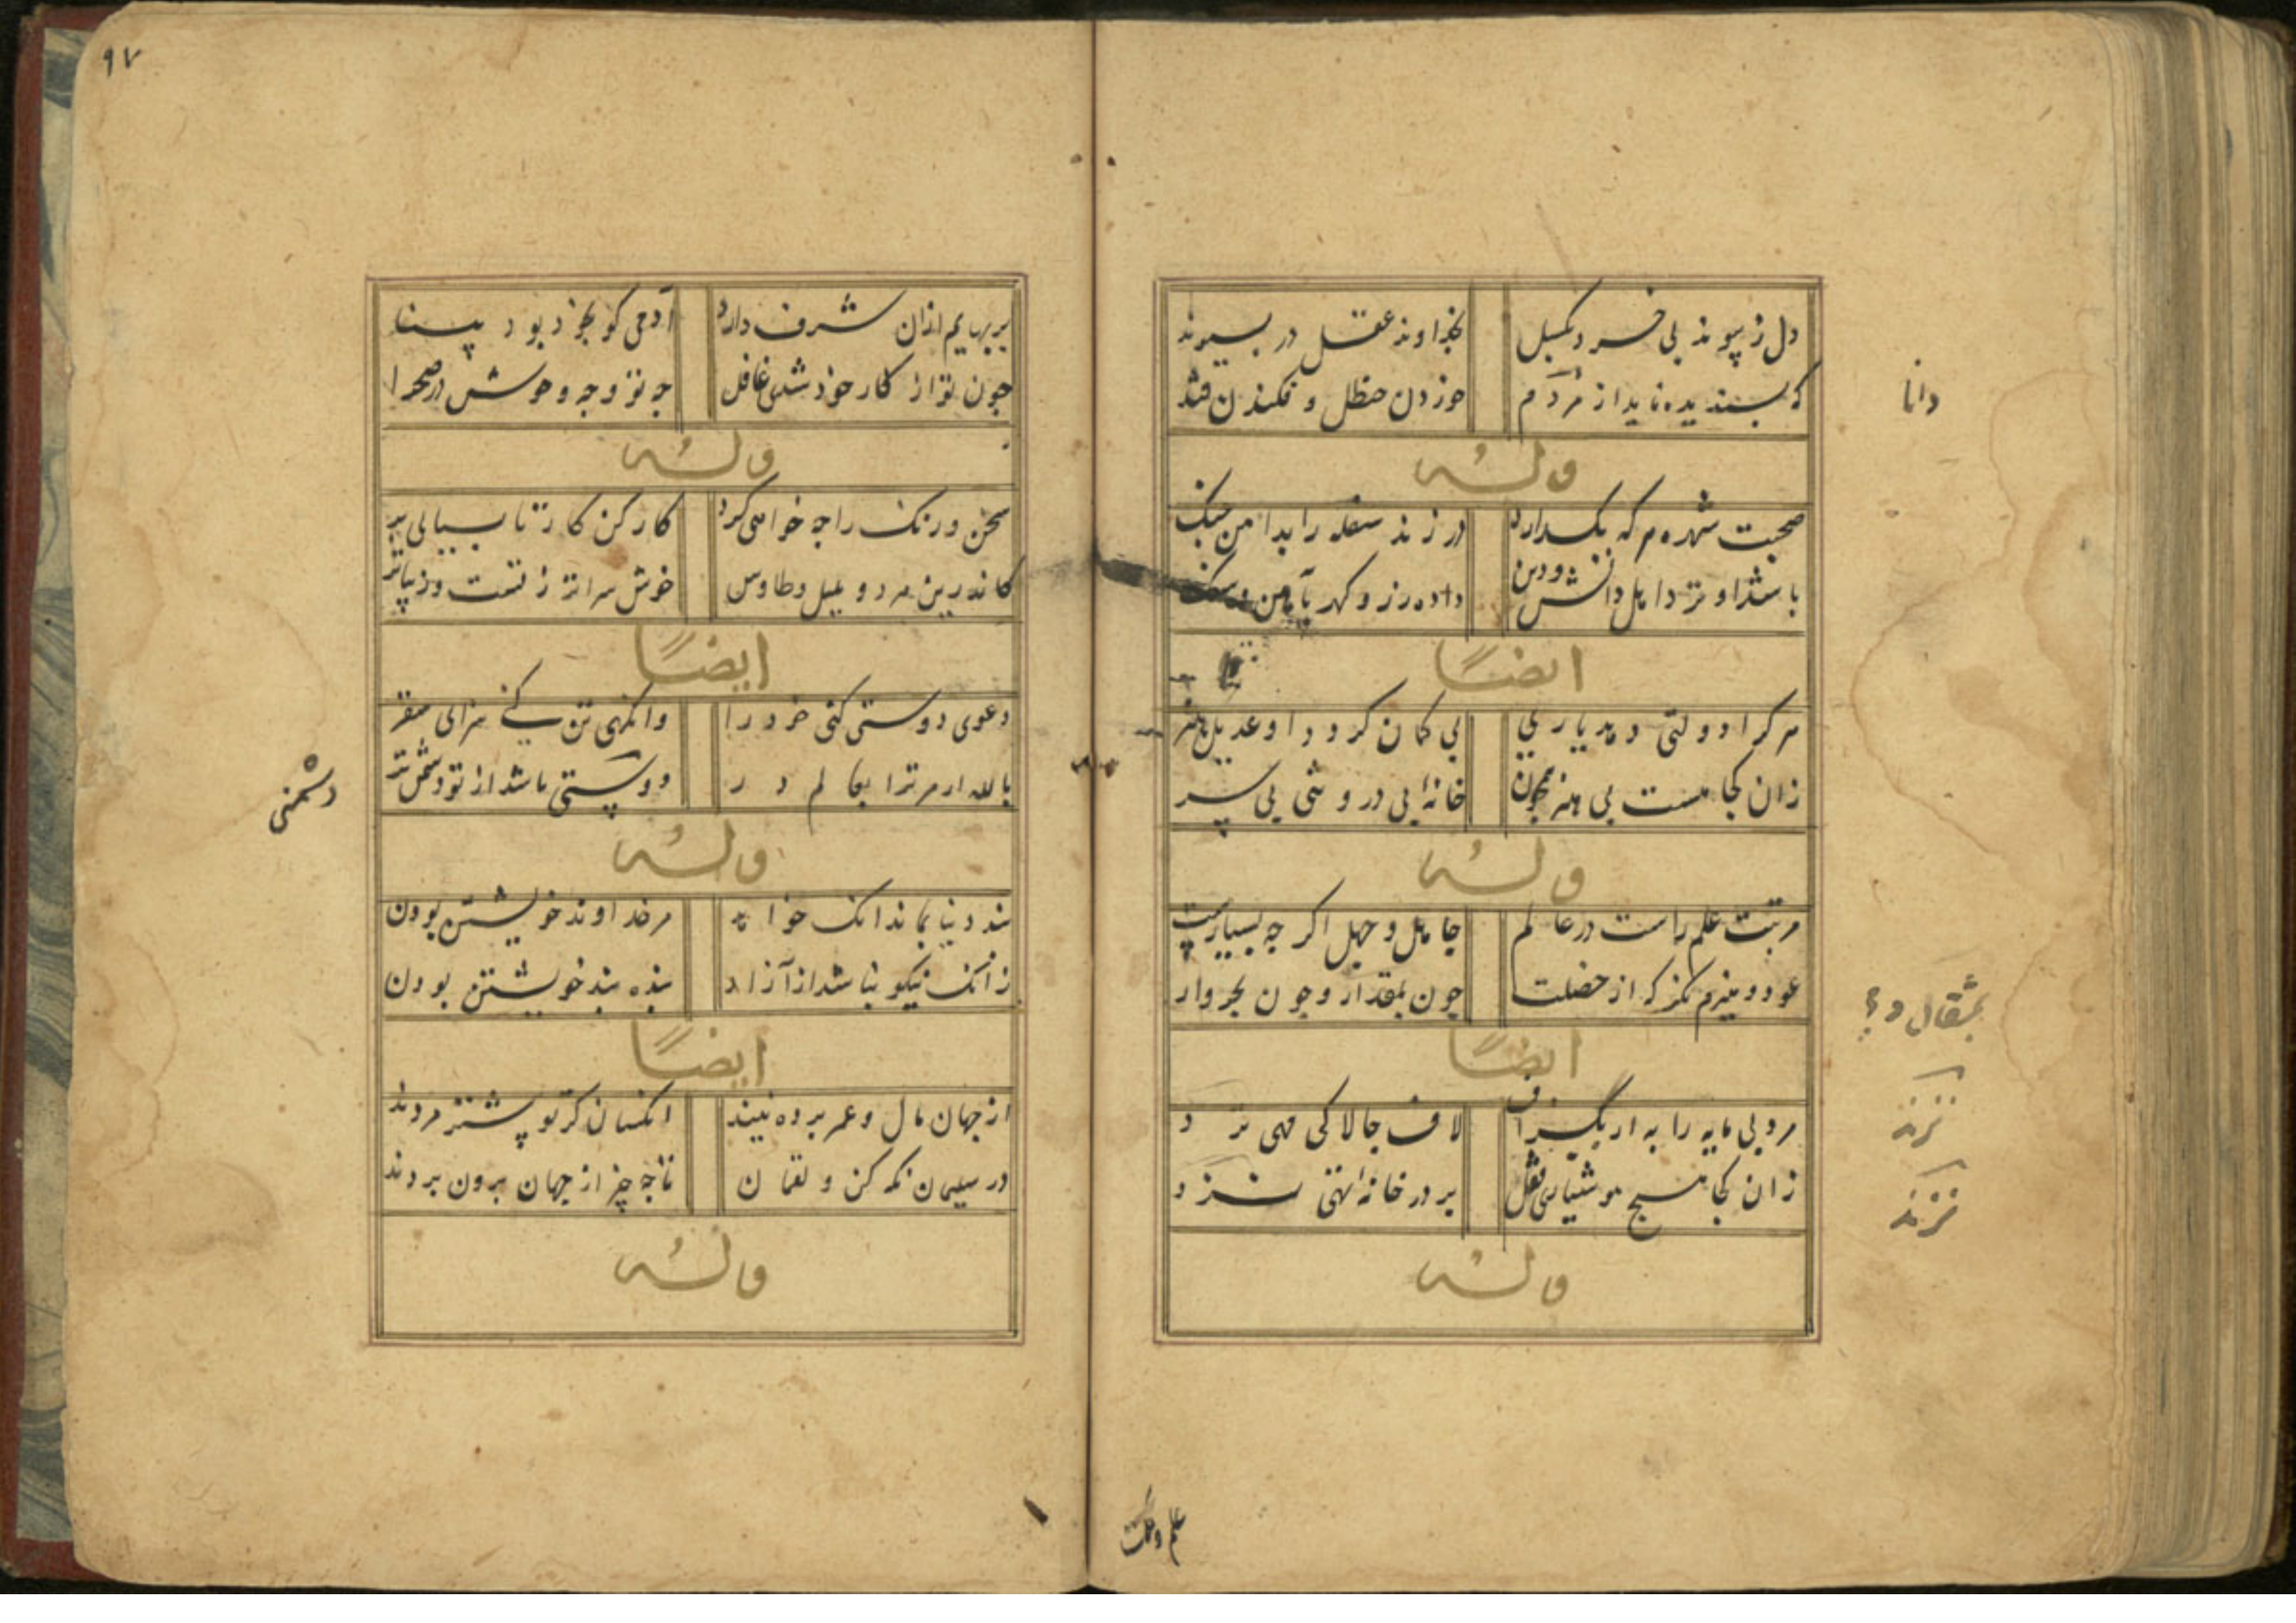 دل ز پیوند بی خرد بکسل
بخداوند عقل در پیوند
که پسندیده ناید از مردم
خوردن حنظل و فکندن قند
دانا
وله
صحبت شهره مرکه بکذارد
در زند سفله را بدامن جنک
باشد او نزد اهل دانش ودین
ایضا
هر کرا دولتی دهد یاری
بی کمان کردد او عدیل هنر
زان کجا هست بی هنر همچون
خانهٔ بی در و شی بی سر
وله
مرتبت علم راست در عالم
جاهل و جهل اکر چه بسیارست
عود و هیزم نکر که از خصلت
چون بمقدار و چون بخروار
بمثقال و
ایضا
مرد بی مایه را به ار بکزاف
لاف چالاکی مهی نزد
نزند
زان کجا هیچ هوشیاری قفل
بر در خانهٔ تهی نزد
نزند
وله
علم و حکمت
٩٧
بر بهایم ازان شرف دارد
آدمی کو بخود بود بینا
چون تو از کار خود شدی غافل
چه تو و چه وحوش در صحرا
وله
سخن و رنک را چه خواهی کرد
کار کن کار تا بیابی بر
کاندرین هر دو بلبل و طاوس
خوش سراتر ز تست و زیباتر
ایضا
دعوی دوستی کنی خرد را
وانکهی تن کنی سزای سقر
بالله ار مر ترا بعالم در
دوستی باشد از تو دشمن تر
دشمنی
وله
بند دنیا بماند انک خواهد
مر خداوند خویشتن بودن
زانک نیکو نباشد از آزاد
بنده بند خویشتن بودن
ایضا
از جهان مال و عمر برده نیند
انکسان کز تو پیشتر مردند
در سلیمان نکه کن و لقمان
تا چه چیز از جهان برون بردند
وله